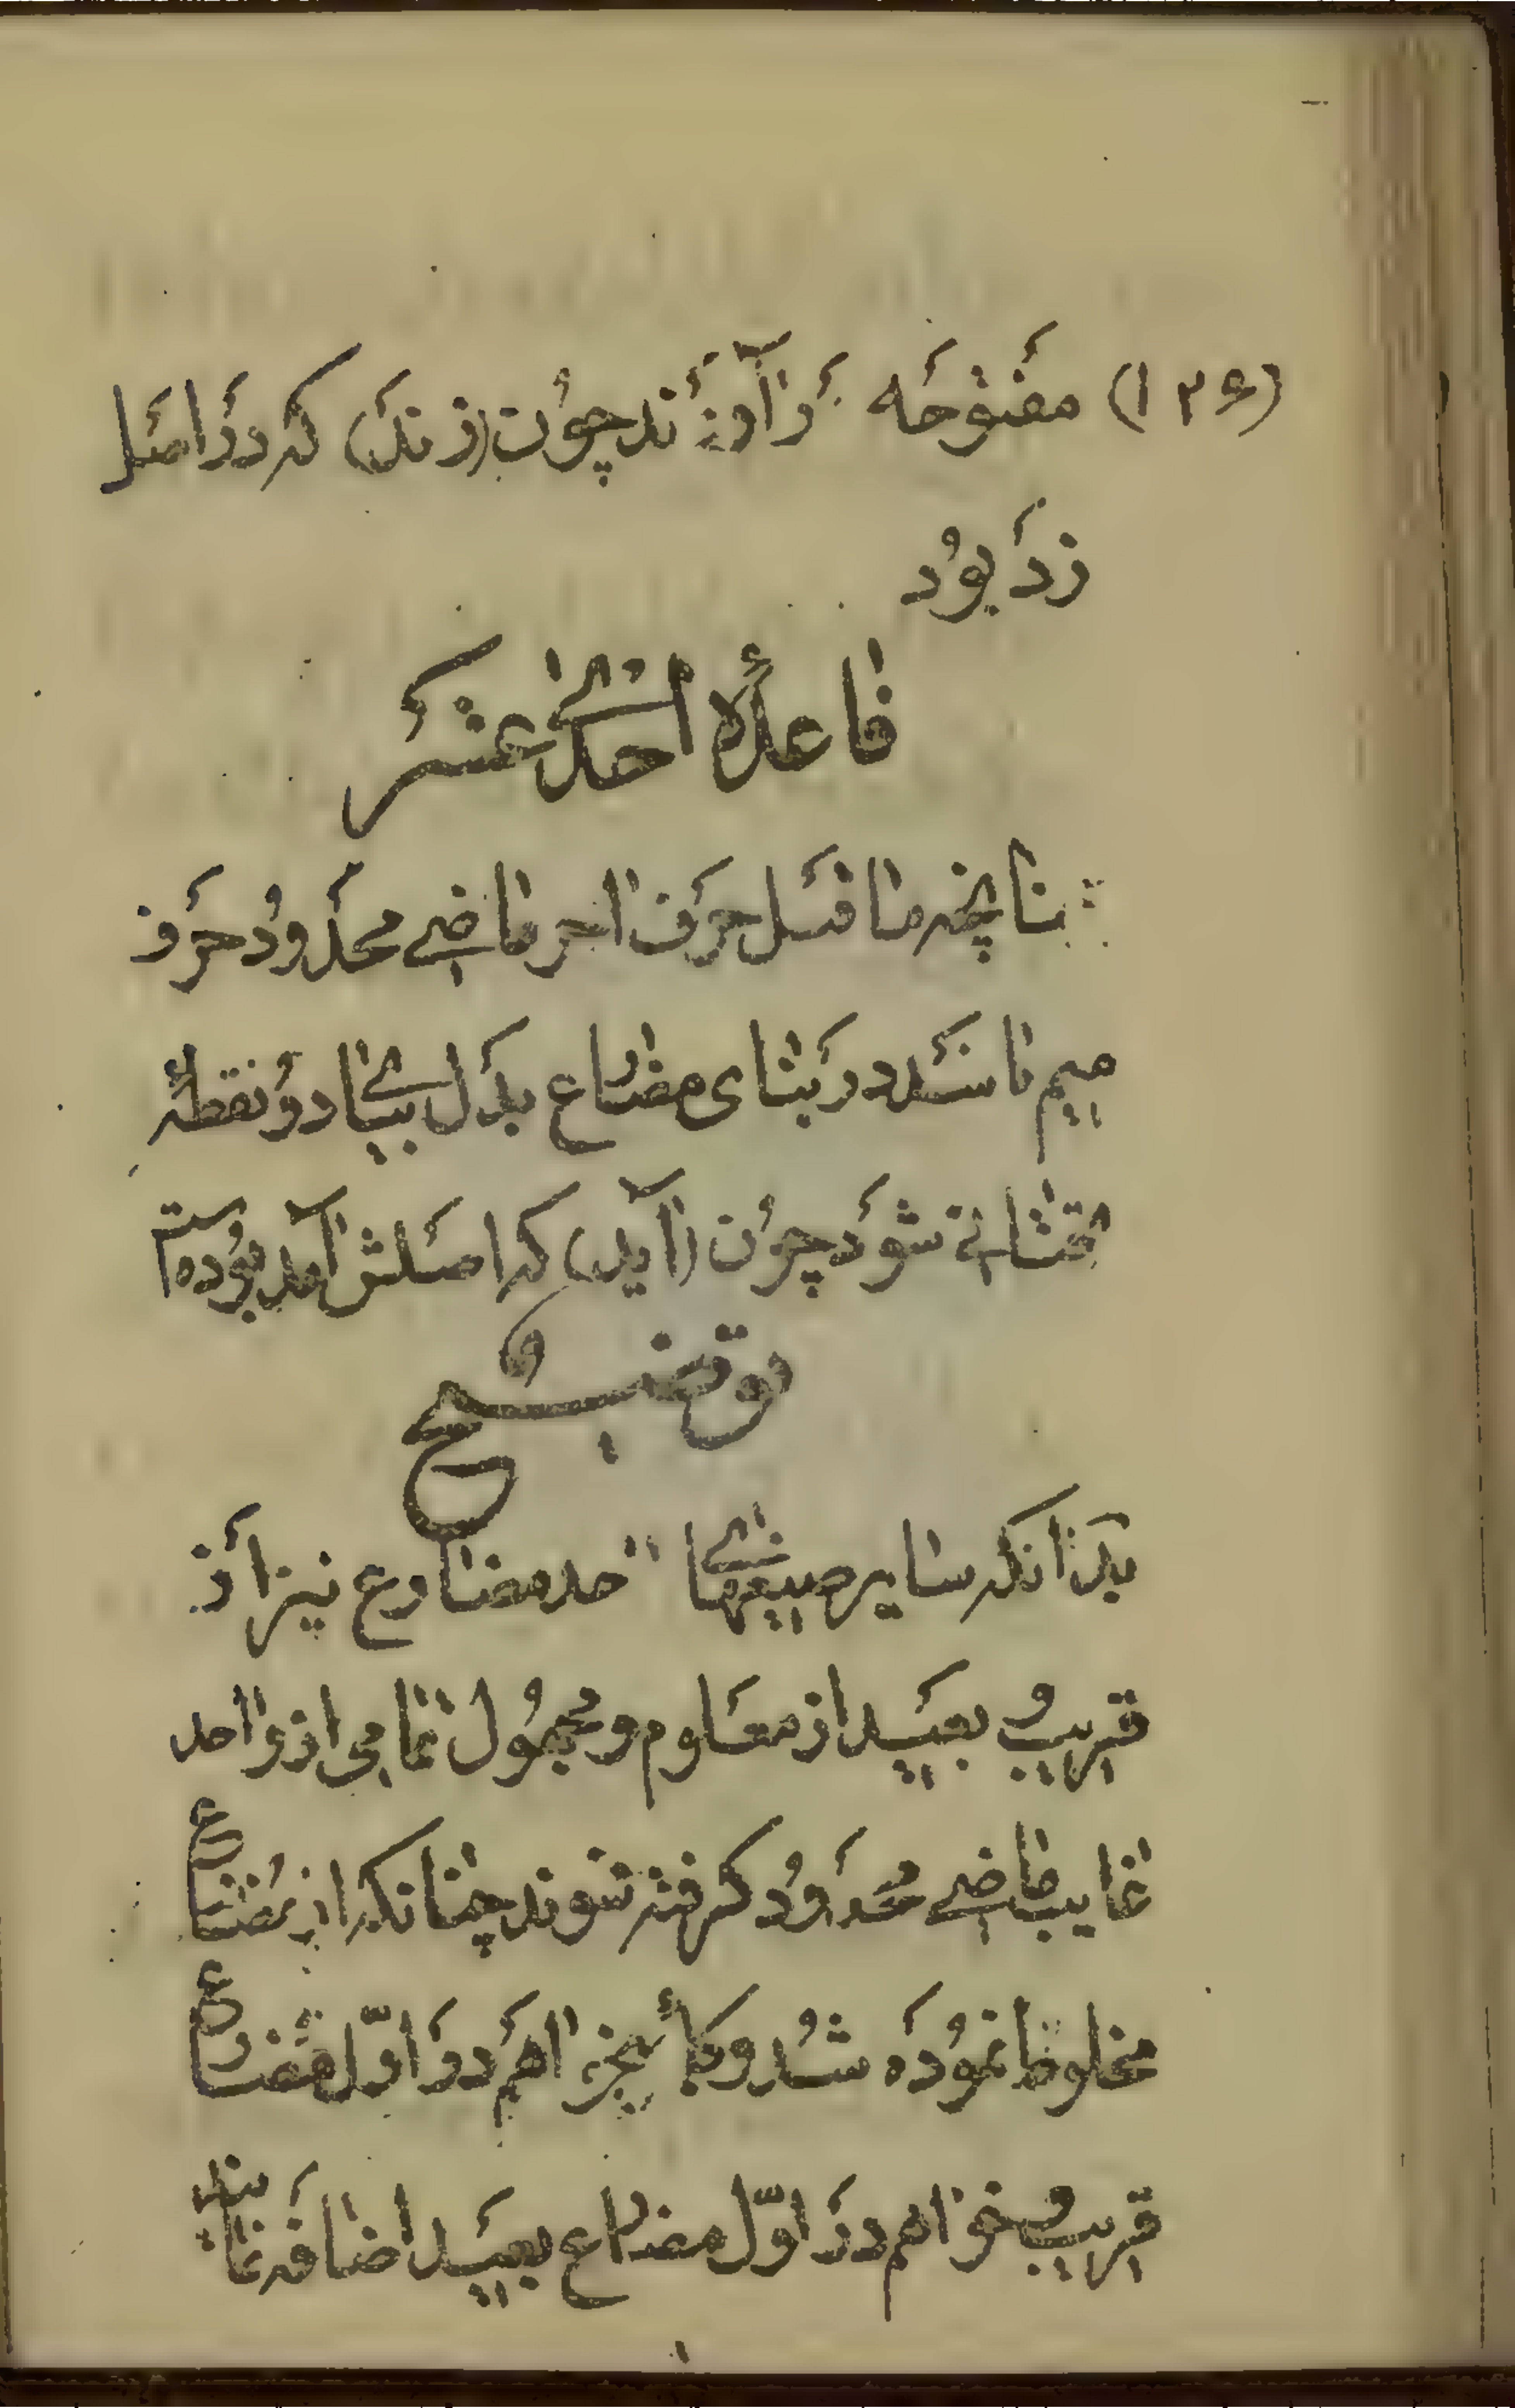 (١٣٤) مفتوحه دَرآوَرَند چُون (زنَد) که دَر اصَل
زدَ بوُد
قاعدهٔ احدی عشر
چنانچه ماقبَل حرَف آخر ماضی محدَودُ حرَف
میم باشَد در بنَای مضارع بدَل بیای دوُ نقطهٔ
تحتانی شوَد چوُن (آید) که اصَلش آمد بوُده است
توضیح
بدَانکه سایر صیغهای واحد مضارع نیز أز
قریب و بعیَد از معلَوم و مجهوُل تمامی از واحد
غایب ماضی محَدَودُ گرفته شوند چنانکه از مضارع
مخلوط نموُدَه شدُ و کلمهٔ خواهَم دَر اوّل مضارع
قریب و خواهم دَر اوّل مضارع بعیَد اضافه نمایند